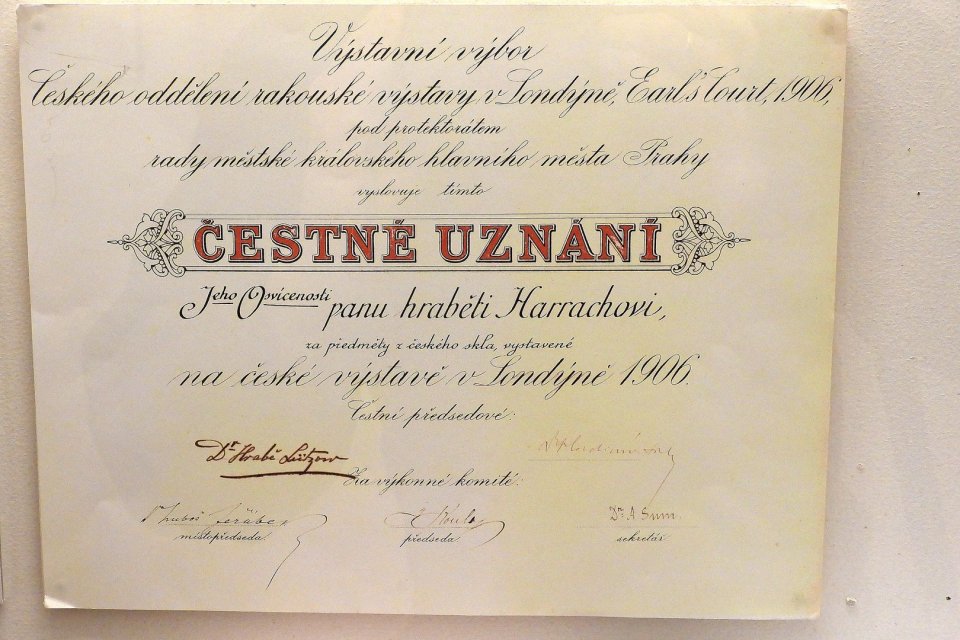 Výstavní výbor
Českého oddělení rakouské výstavy v Londýně, Earl's Court, 1906,
pod protektorátem
rady městské královského hlavního města Prahy
vyslovuje tímto
ČESTNÉ UZNÁNÍ
Jeho Osvícenosti panu hraběti Harrachovi,
za předměty z českého skla, vystavené
na české výstavě v Londýně 1906.
Čestní předsedové:
Dr Hrabě Lützow
Za výkonné komité:
Dr Luboš Jeřábek
Dr. A Šum.
místopředseda.
předseda.
sekretář.